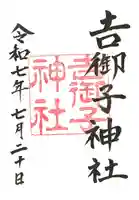 𠮷御子神社
令和七年七月二十日
吉御子
神社